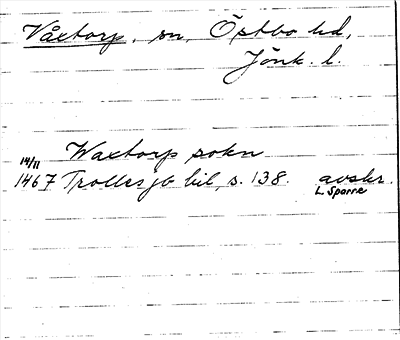 Våxtorp, sn, Östbo hd,
Jönk. l.
Waxtorp sokn
14/11
1467 Trollesjö bil, s. 138. avskr.
L Sparre